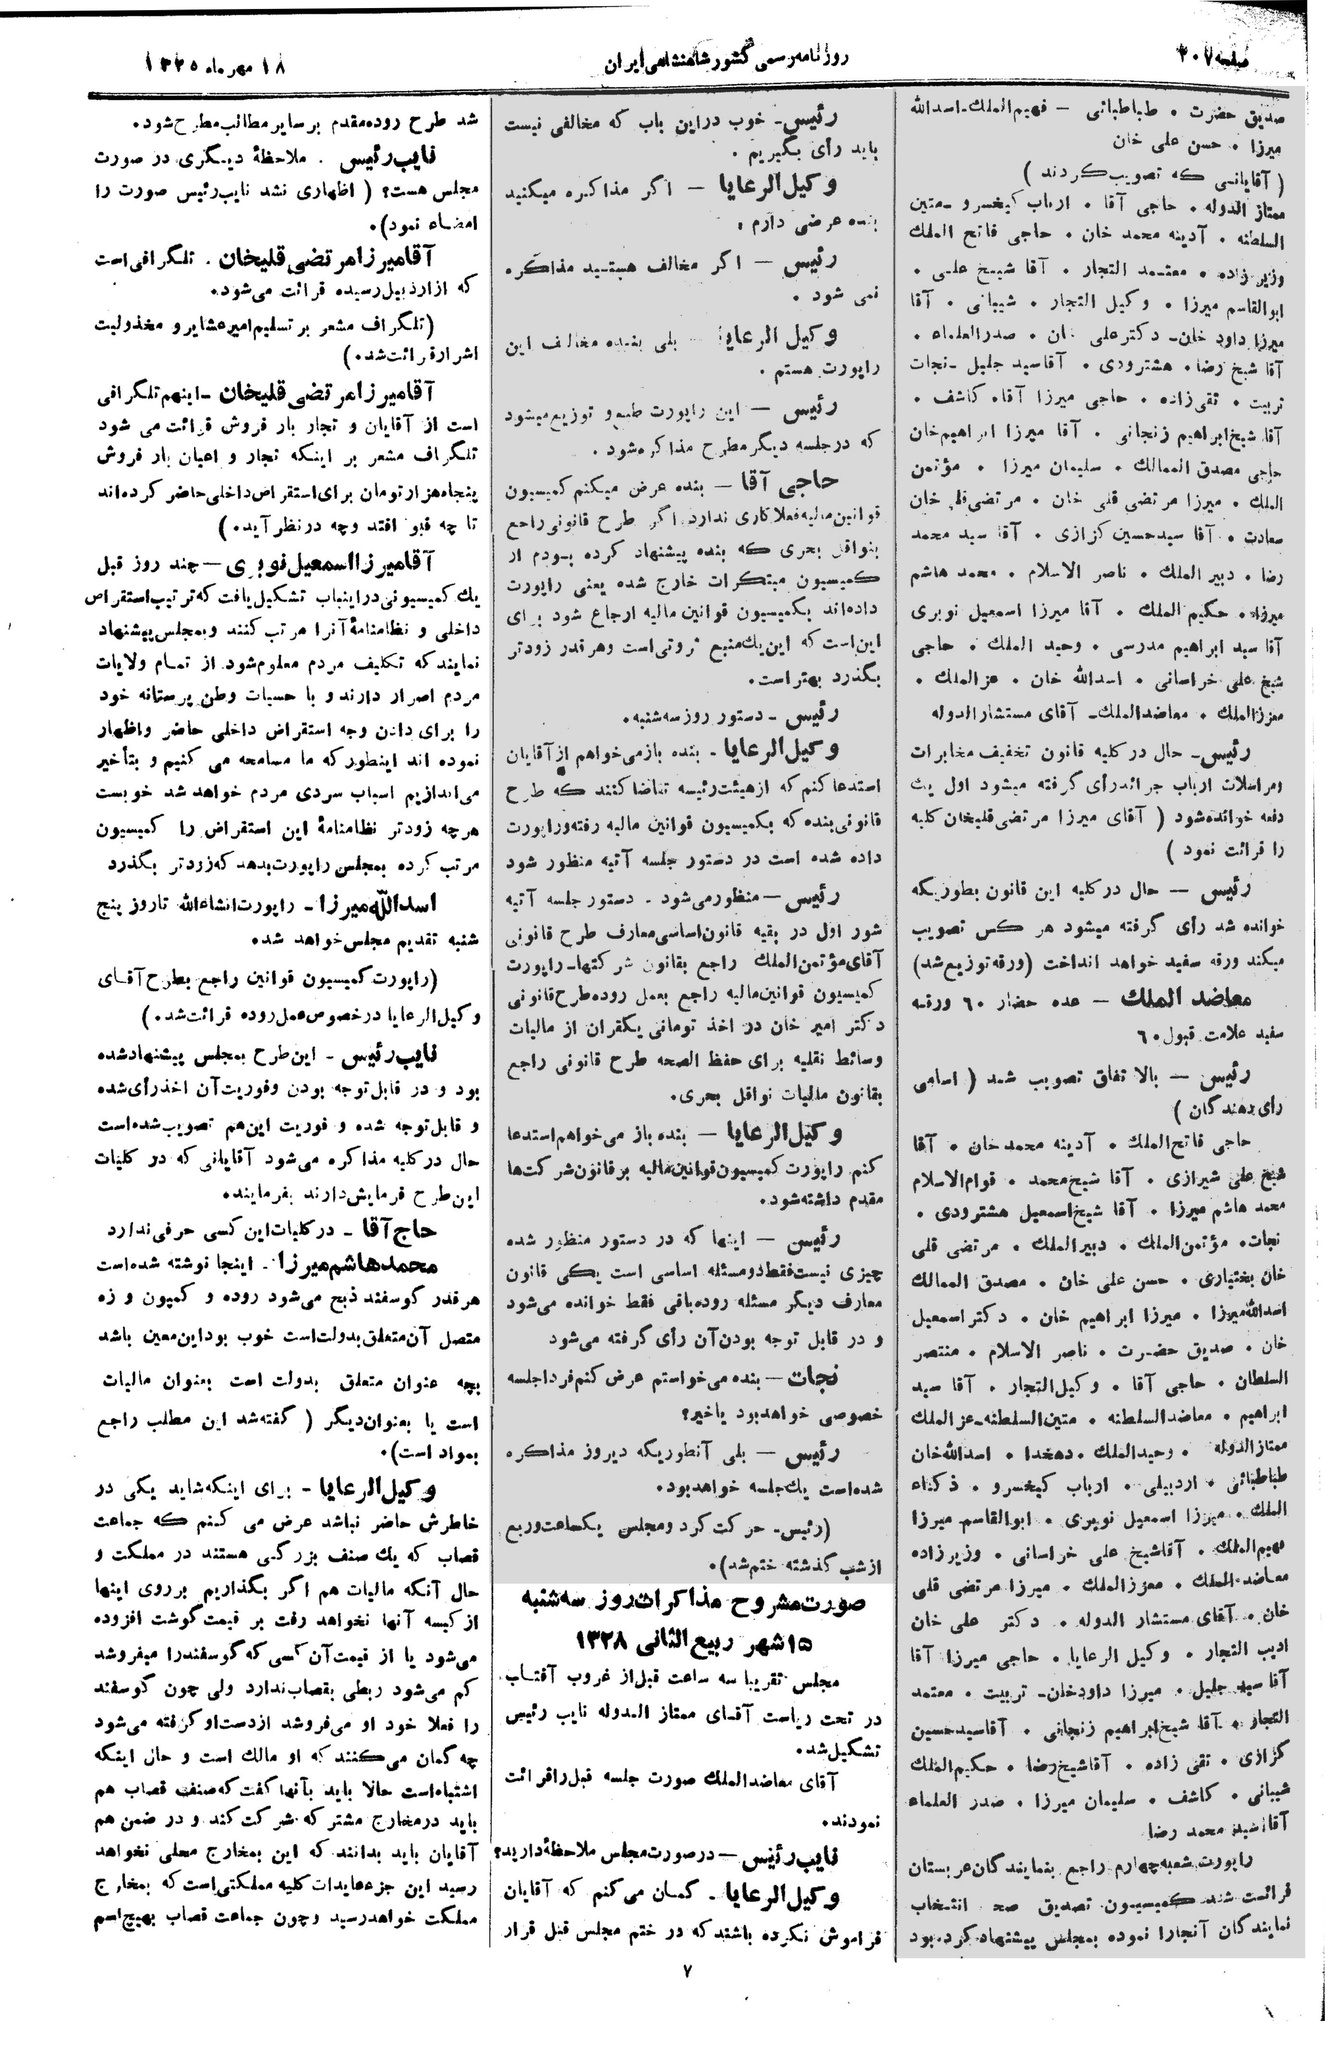 صفحه ۲۰۷
روزنامه رسمی کشور شاهنشاهی ایران
۱۸ مهرماه ۱۳۲۵
صدیق حضرت ۰ طباطبائی – فهیم‌الملك-اسدالله
میرزا ۰ حسن علی خان
( آقایانی که تصویب کردند )
ممتاز الدوله ۰ حاجی آقا ۰ ارباب کیخسرو -متین
السلطنه ۰ آدینه محمد خان ۰ حاجی فاتح الملك
وزیر زاده ۰ معتمد التجار ۰ آقا شیخ علی ۰
ابوالقاسم میرزا ۰ وکیل التجار ۰ شیبانی ۰ آقا
میرزا داود خان- دکتر علی خان ۰ صدرالعلماء ۰
آقا شیخ رضا ۰ هشترودی ۰ آقاسید جلیل -نجات
تربیت ۰ تقی‌زاده ۰ حاجی میرزا آقا ۰ کاشف ۰
آقا شیخ‌ابراهیم زنجانی ۰ آقا میرزا ابراهیم‌خان
حاجی مصدق الممالك ۰ سلیمان میرزا ۰ مؤتمن
الملك ۰ میرزا مرتضی قلی خان ۰ مرتضی قلی خان
سعادت ۰ آقا سیدحسین کزازی ۰ آقا سید محمد
رضا ۰ دبیر الملك ۰ ناصر الاسلام ۰ محمد هاشم
میرزا ۰ حکیم الملك ۰ آقا میرزا اسمعیل نوبری
آقا سید ابراهیم مدرسی ۰ وحید الملك ۰ حاجی
شیخ علی خراسانی ۰ اسدالله خان ۰ عزالملك ۰
معززالملك ۰ معاضدالملك- آقای مستشارالدوله
رئیس- حال در کلیه قانون تخفیف مخابرات
ومراسلات ارباب جرائد رأی گرفته میشود اول یك
دفعه خوانده‌شود ( آقای میرزا مرتضی‌قلیخان کلیه
را قرائت نمود )
رئیس — حال در کلیه این قانون بطوریکه
خوانده شد رأی گرفته میشود هر کس تصویب
میکند ورقه سفید خواهد انداخت (ورقه توزیع شد)
معاضد الملك – عده حضار ۶۰ ورقه
سفید علامت قبول ۶۰
رئیس — بالاتفاق تصویب شد ( اسامی
رأی دهندگان )
حاجی فاتح‌الملك ۰ آدینه محمدخان ۰ آقا
شیخ علی شیرازی ۰ آقا شیخ‌محمد ۰ قوام‌الاسلام
محمد هاشم میرزا ۰ آقا شیخ‌اسمعیل هشترودی ۰
نجات ۰ مؤتمن‌الملك ۰ دبیرالملك ۰ مرتضی قلی
خان بختیاری ۰ حسن علی خان ۰ مصدق الممالك
اسدالله‌میرزا ۰ میرزا ابراهیم خان ۰ دکتراسمعیل
خان ۰ صدیق حضرت ۰ ناصر الاسلام ۰ منتصر
السلطان ۰ حاجی آقا ۰ وکیل‌التجار ۰ آقا سید
ابراهیم ۰ معاضدالسلطنه ۰ متین‌السلطنه- عزالملك
ممتازالدوله ۰ وحیدالملك ۰ دهخدا ۰ اسدالله‌خان
طباطبائی ۰ اردبیلی ۰ ارباب کیخسرو ۰ ذکاء
الملك ۰ میرزا اسمعیل نوبری ۰ ابوالقاسم میرزا
فهیم‌الملك ۰ آقاشیخ علی خراسانی ۰ وزیرزاده
معاضد الملك ۰ معززالملك ۰ میرزا مرتضی قلی
خان ۰ آقای مستشار الدوله ۰ دکتر علی خان
ادیب التجار ۰ وکیل الرعایا ۰ حاجی میرزا آقا
آقا سید جلیل ۰ میرزا داودخان- تربیت ۰ معتمد
التجار ۰ آقا شیخ‌ابراهیم زنجانی ۰ آقاسیدحسین
کزازی ۰ تقی زاده ۰ آقاشیخ رضا ۰ حکیم‌الملك
شیبانی ۰ کاشف ۰ سلیمان میرزا ۰ صدر العلماء
آقا سید محمد رضا
راپورت شعبه چهارم راجع بنمایندگان عربستان
قرائت شد کمیسیون تصدیق انتخاب
نمایندگان آنجا را نموده بمجلس پیشنهاد کرده بود
رئیس- خوب دراین باب که مخالفی نیست
باید رأی بگیریم ۰
وکیل الرعایا – اگر مذاکره میکنید
بنده عرضی دارم ۰
رئیس – اگر مخالف هستید مذاکره
نمی شود ۰
وکیل الرعایا – بلی بنده مخالف این
راپورت هستم ۰
رئیس – این راپورت طبع و توزیع میشود
که در جلسه دیگر مطرح مذاکره شود ۰
حاجی آقا – بنده عرض میکنم کمیسیون
قوانین‌مالیه فعلا کاری ندارد اگر طرح قانونی راجع
بنواقل بحری که بنده پیشنهاد کرده بودم از
کمیسیون مبتکرات خارج شده یعنی راپورت
داده‌اند بکمیسیون قوانین مالیه ارجاع شود برای
این‌است که این‌یك‌منبع ثروتی‌است وهرقدر زودتر
بگذرد بهتراست.
رئیس - دستور روز سه شنبه ۰
وکیل‌الرعایا - بنده بازمی‌خواهم از آقایان
استدعا کنم که ازهیئت‌رئیسه تقاضا کنند که طرح
قانونی‌بنده که بکمیسیون قوانین مالیه رفته‌وراپورت
داده شده است در دستور جلسه آتیه منظور شود
رئیس – منظورمی‌شود ۰ دستور جلسه آتیه
شور اول در بقیه قانون‌اساسی‌معارف طرح قانونی
آقای‌مؤتمن‌الملك راجع بقانون شرکتها- راپورت
کمیسیون قوانین‌مالیه راجع بعمل روده طرح‌قانونی
دکتر امیر خان در اخذ تومانی یکقران از مالیات
وسائط نقلیه برای حفظ الصحه طرح قانونی راجع
بقانون مالیات نواقل بحری.
وکیل‌الرعایا – بنده باز می‌خواهم‌استدعا
کنم راپورت کمیسیون‌قوانین‌مالیه برقانون‌شرکت‌ها
مقدم داشته‌شود.
رئیس – اینها که در دستور منظور شده
چیزی نیست‌فقط دومسئله اساسی است یکی قانون
معارف دیگر مسئله روده‌باقی فقط خوانده می‌شود
و در قابل توجه بودن‌آن رأی گرفته می‌شود
نجات – بنده می‌خواستم عرض کنم‌فرداجلسه
خصوصی خواهدبود یاخیر؟
رئیس – بلی آنطوریکه دیروز مذاکره
شده‌است یك‌جلسه خواهدبود.
(رئیس- حرکت کرد ومجلس یکساعت‌وربع
ازشب گذشته ختم‌شد)۰
صورت‌مشروح مذاکرات روز سه شنبه
۱۵ شهر ربیع الثانی ۱۳۲۸
مجلس تقریبا سه ساعت قبل‌از غروب آفتاب
در تحت ریاست آقای ممتاز الدوله نایب رئیس
تشکیل‌شد.
آقای معاضدالملك صورت جلسه قبل‌راقرائت
نمودند.
نایب‌رئیس – درصورت‌مجلس ملاحظهٔ دارید؟
وکیل‌الرعایا - گمان می‌کنم که آقایان
فراموش نکرده باشند که در ختم مجلس قبل قرار
شد طرح روده‌مقدم برسایر مطالب مطرح‌شود.
نایب‌رئیس ۰ ملاحظهٔ دیگری در صورت
مجلس هست؟ ( اظهاری نشد نایب‌رئیس صورت را
امضاء نمود)۰
آقامیرزامرتضی قلیخان ۰ تلگرافی‌است
که ازاردبیل رسیده قرائت می‌شود.
(تلگراف مشعر برتسلیم‌امیرعشایر و مخذولیت
اشرارقرائت‌شد۰)
آقامیرزامرتضی قلیخان -اینهم‌تلگرافی
است از آقایان و تجار بار فروش قرائت می شود
تلگراف مشعر بر اینکه تجار و اعیان بار فروش
پنجاه‌هزارتومان برای‌استقراض‌داخلی‌حاضر کرده‌اند
تا چه قبول افتد وچه درنظرآید۰)
آقامیرزااسمعیل‌نوبری – چند روز قبل
یك‌کمیسیونی‌دراینباب تشکیل‌یافت که‌ترتیب‌استقراض
داخلی و نظامنامهٔ آنرا مرتب کنند وبمجلس‌پیشنهاد
نمایند که تکلیف مردم معلوم‌شود. از تمام ولایات
مردم اصرار دارند و با حسیات وطن پرستانه خود
را برای دادن وجه استقراض داخلی حاضر واظهار
نموده اند اینطور که ما مسامحه می کنیم و بتأخیر
می‌اندازیم اسباب سردی مردم خواهد شد خوبست
هرچه زودتر نظامنامهٔ این استقراض را کمیسیون
مرتب کرده بمجلس راپورت‌بدهد که زودتر بگذرد
اسدالله‌میرزا- راپورت‌انشاءالله تاروز پنج
شنبه تقدیم مجلس‌خواهد شد۰
(راپورت کمیسیون قوانین راجع بطرح‌آقای
وکیل‌الرعایا درخصوص عمل‌روده قرائت‌شد۰)
نایب‌رئیس - این‌طرح بمجلس پیشنهادشده
بود و در قابل‌توجه بودن وفوریت‌آن اخذرأی‌شده
و قابل‌توجه شده و فوریت این‌هم تصویب‌شده‌است
حال درکلیه مذاکره می‌شود آقایانی که در کلیات
این‌طرح فرمایش‌دارند بفرمایند.
حاج‌آقا - درکلیات‌این کسی حرفی‌ندارد
محمدهاشم‌میرزا - اینجا نوشته شده‌است
هرقدر گوسفند ذبح می‌شود روده و کمپون و زه
متصل آن‌متعلق بدولت‌است خوب بوداین‌معین باشد
بچه عنوان متعلق بدولت است بعنوان مالیات
است یا بعنوان‌دیگر ( گفته‌شد این مطلب راجع
بمواد است)۰
وکیل‌الرعایا - برای اینکه‌شاید یکی در
خاطرش حاضر نباشد عرض می کنم که جماعت
قصاب که یك صنف بزرگی هستند در مملکت و
حال آنکه مالیات هم اگر بگذاریم برروی اینها
از کیسه آنها نخواهد رفت بر قیمت گوشت افزوده
می‌شود یا از قیمت آن کسی که گوسفندرا میفروشد
کم می‌شود ربطی بقصاب‌ندارد ولی چون گوسفند
را فعلا خود او می‌فروشد ازدست‌او گرفته می‌شود
چه گمان می‌کنند که او مالك است و حال اینکه
اشتباه‌است حالا باید بآنها گفت که‌صنف قصاب هم
باید درمخارج مشترکه شرکت‌کند و در ضمن هم
آقایان باید بدانند که این بمخارج محلی نخواهد
رسید این جزءعایدات کلیه مملکتی‌است که بمخارج
مملکت خواهدرسید وچون جماعت قصاب بهیچ‌اسم
۷